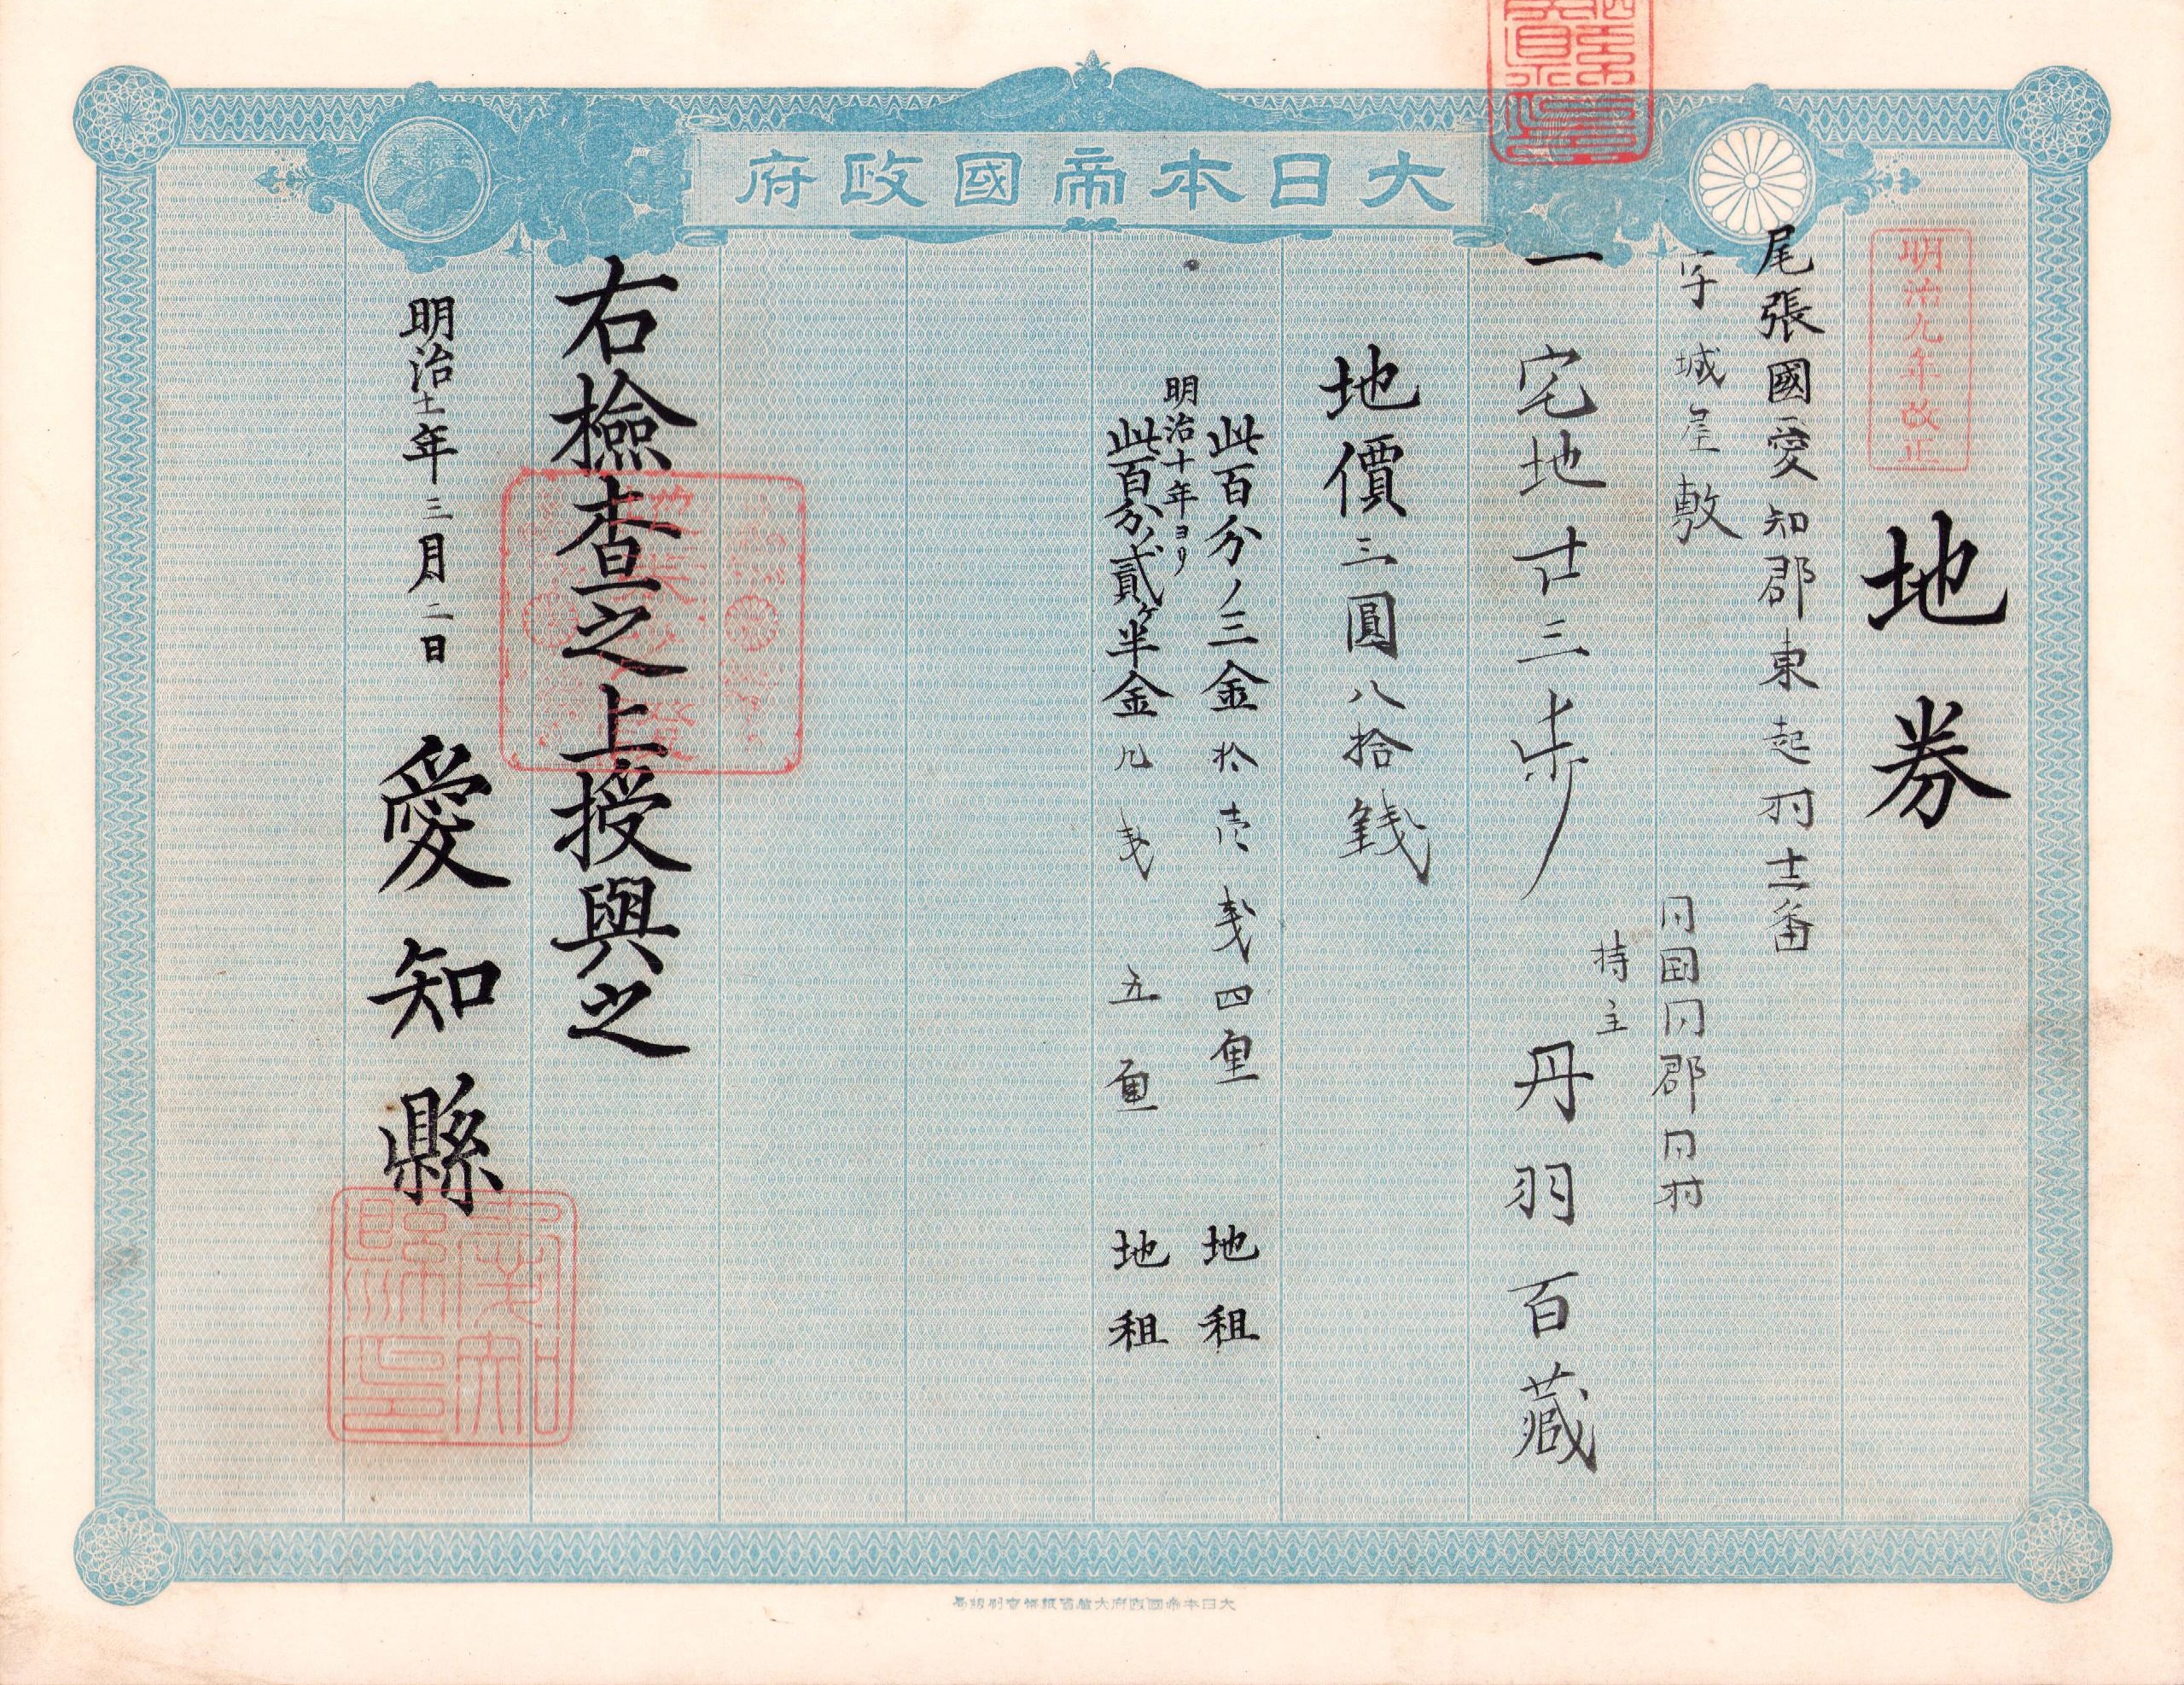 大日本帝國政府
明治九年改正
地券
尾張國愛知郡東起村十二番
字城屋敷
同国同郡同村
持主 丹羽百蔵
一宅地廿三歩
地價三圓八拾銭
此百分ノ三金拾壱銭四厘 地租
明治十年ヨリ
此百分ノ貳ケ半金九銭五厘 地租
右檢査之上授與之
明治十二年三月二日 愛知縣
愛知縣印
大日本帝國政府大蔵省紙幣寮印刷局